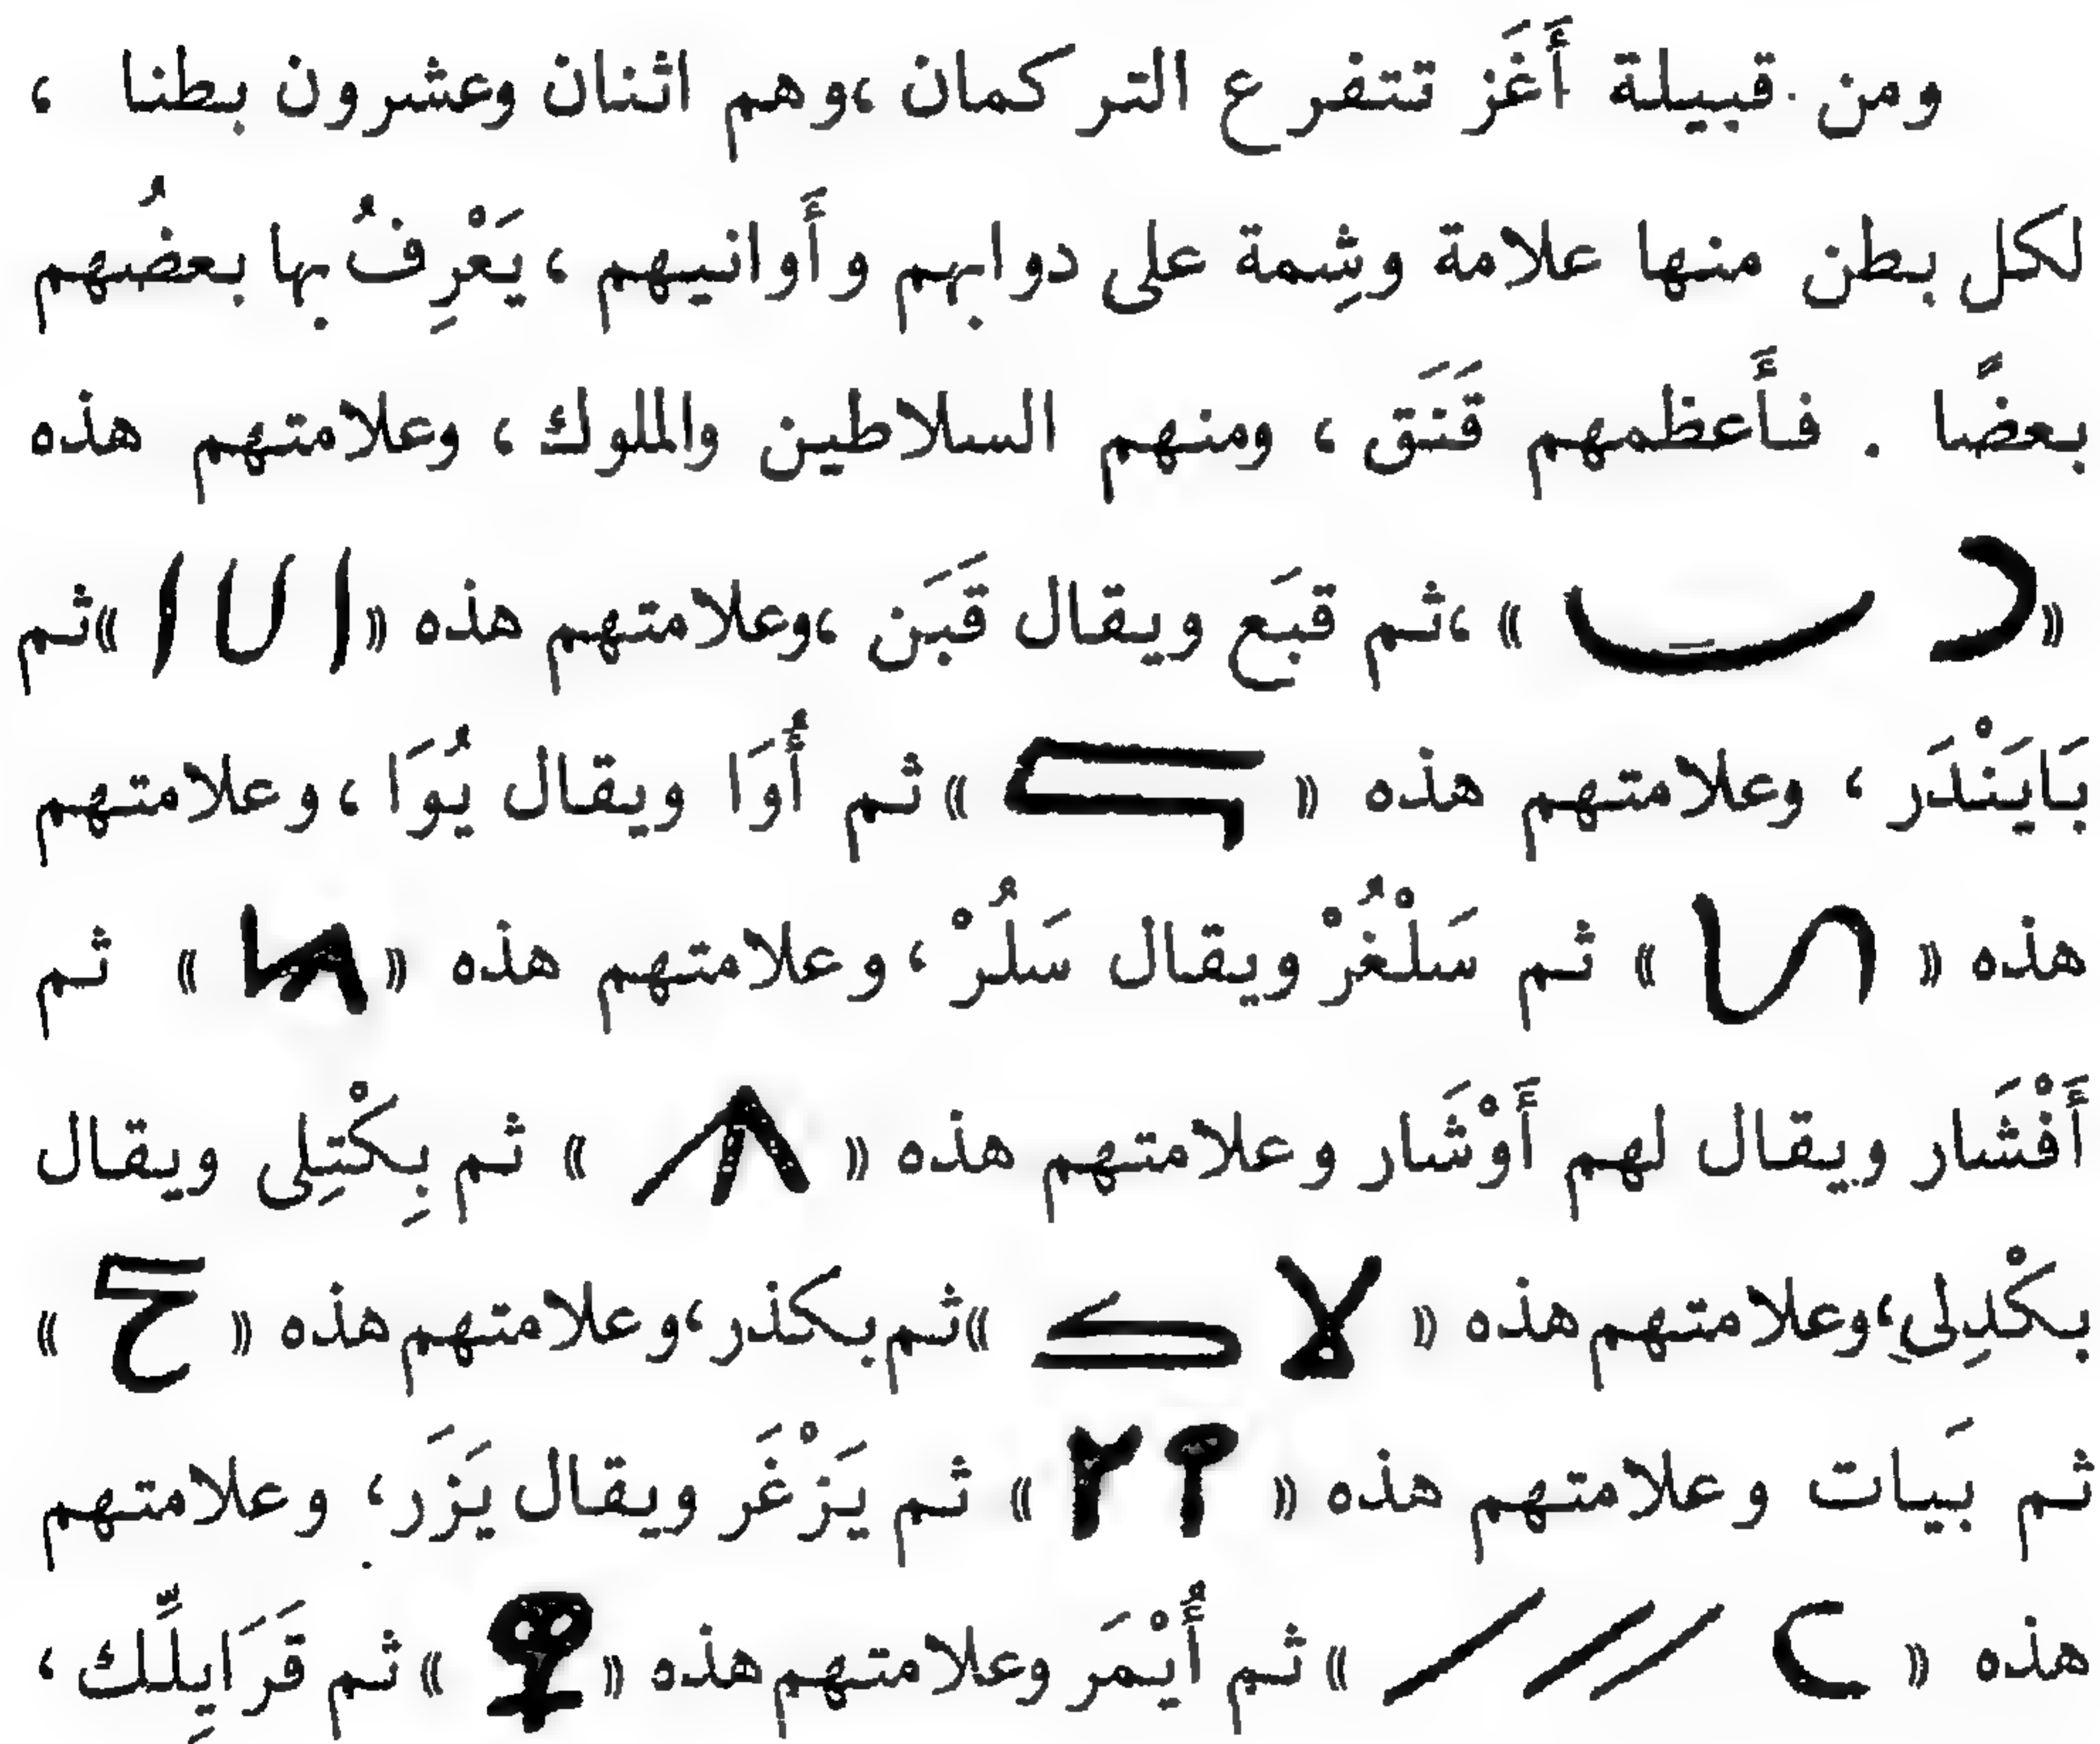 ومن قبيلة أَغَز تتفرع التركمان ،وهم اثنان وعشرون بطنا ،
لكل بطن منها علامة وشِمة على دوابهم وأَوانيهم ، يَعْرِفُ بها بعضُهم
بعضًا . فأَعظمهم قَنَق ، ومنهم السلاطين والملوك ، وعلامتهم هذه
« » ،ثم قبَع ويقال قَبَن ،وعلامتهم هذه « » ثم
بَايَنْدَر ، وعلامتهم هذه « » ثم أُوَا ويقال يُوَا ، وعلامتهم
هذه « » ثم سَلْغُرْ ويقال سَلُرْ ، وعلامتهم هذه « » ثم
أَفْشَار ويقال لهم أَوْشَار وعلامتهم هذه « » ثم بِكْتِلى ويقال
بكْدِلىِ ،وعلامتهم هذه « » ثم بكذر ،وعلامتهم هذه « »
ثم بَيات وعلامتهم هذه « » ثم يَزْغَر ويقال يَزَر ، وعلامتهم
هذه « » ثم أُيْمَر وعلامتهم هذه « » ثم قَرَايِلِّك ،